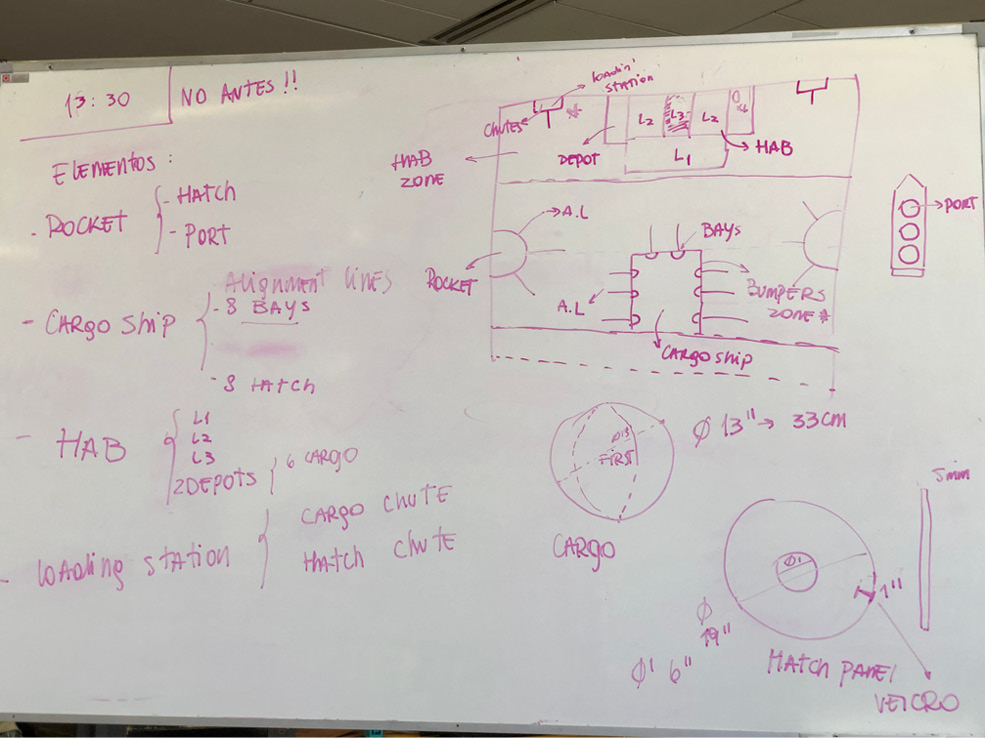 13:30
NO ANTES!!
Elementos:
- ROCKET
- HATCH
- PORT
Alignment lines
- CARGO SHIP
- 8 BAYS
- 8 HATCH
- HAB
L1
L2
L3
2DEPOTS
6 CARGO
- loading station
CARGO CHUTE
HATCH CHUTE
loadin'
station
CHUTES
*
L2
L3
L2
DEPOT
L1
HAB
HAB
ZONE
A.L
BAYS
ROCKET
A.L
BUMPERS
ZONE *
CARGO SHIP
PORT
Ø13
FIRST
Ø 13" → 33cm
CARGO
5mm
Ø'
1"
Ø
19"
Ø' 6"
HATCH PANEL
VELCRO